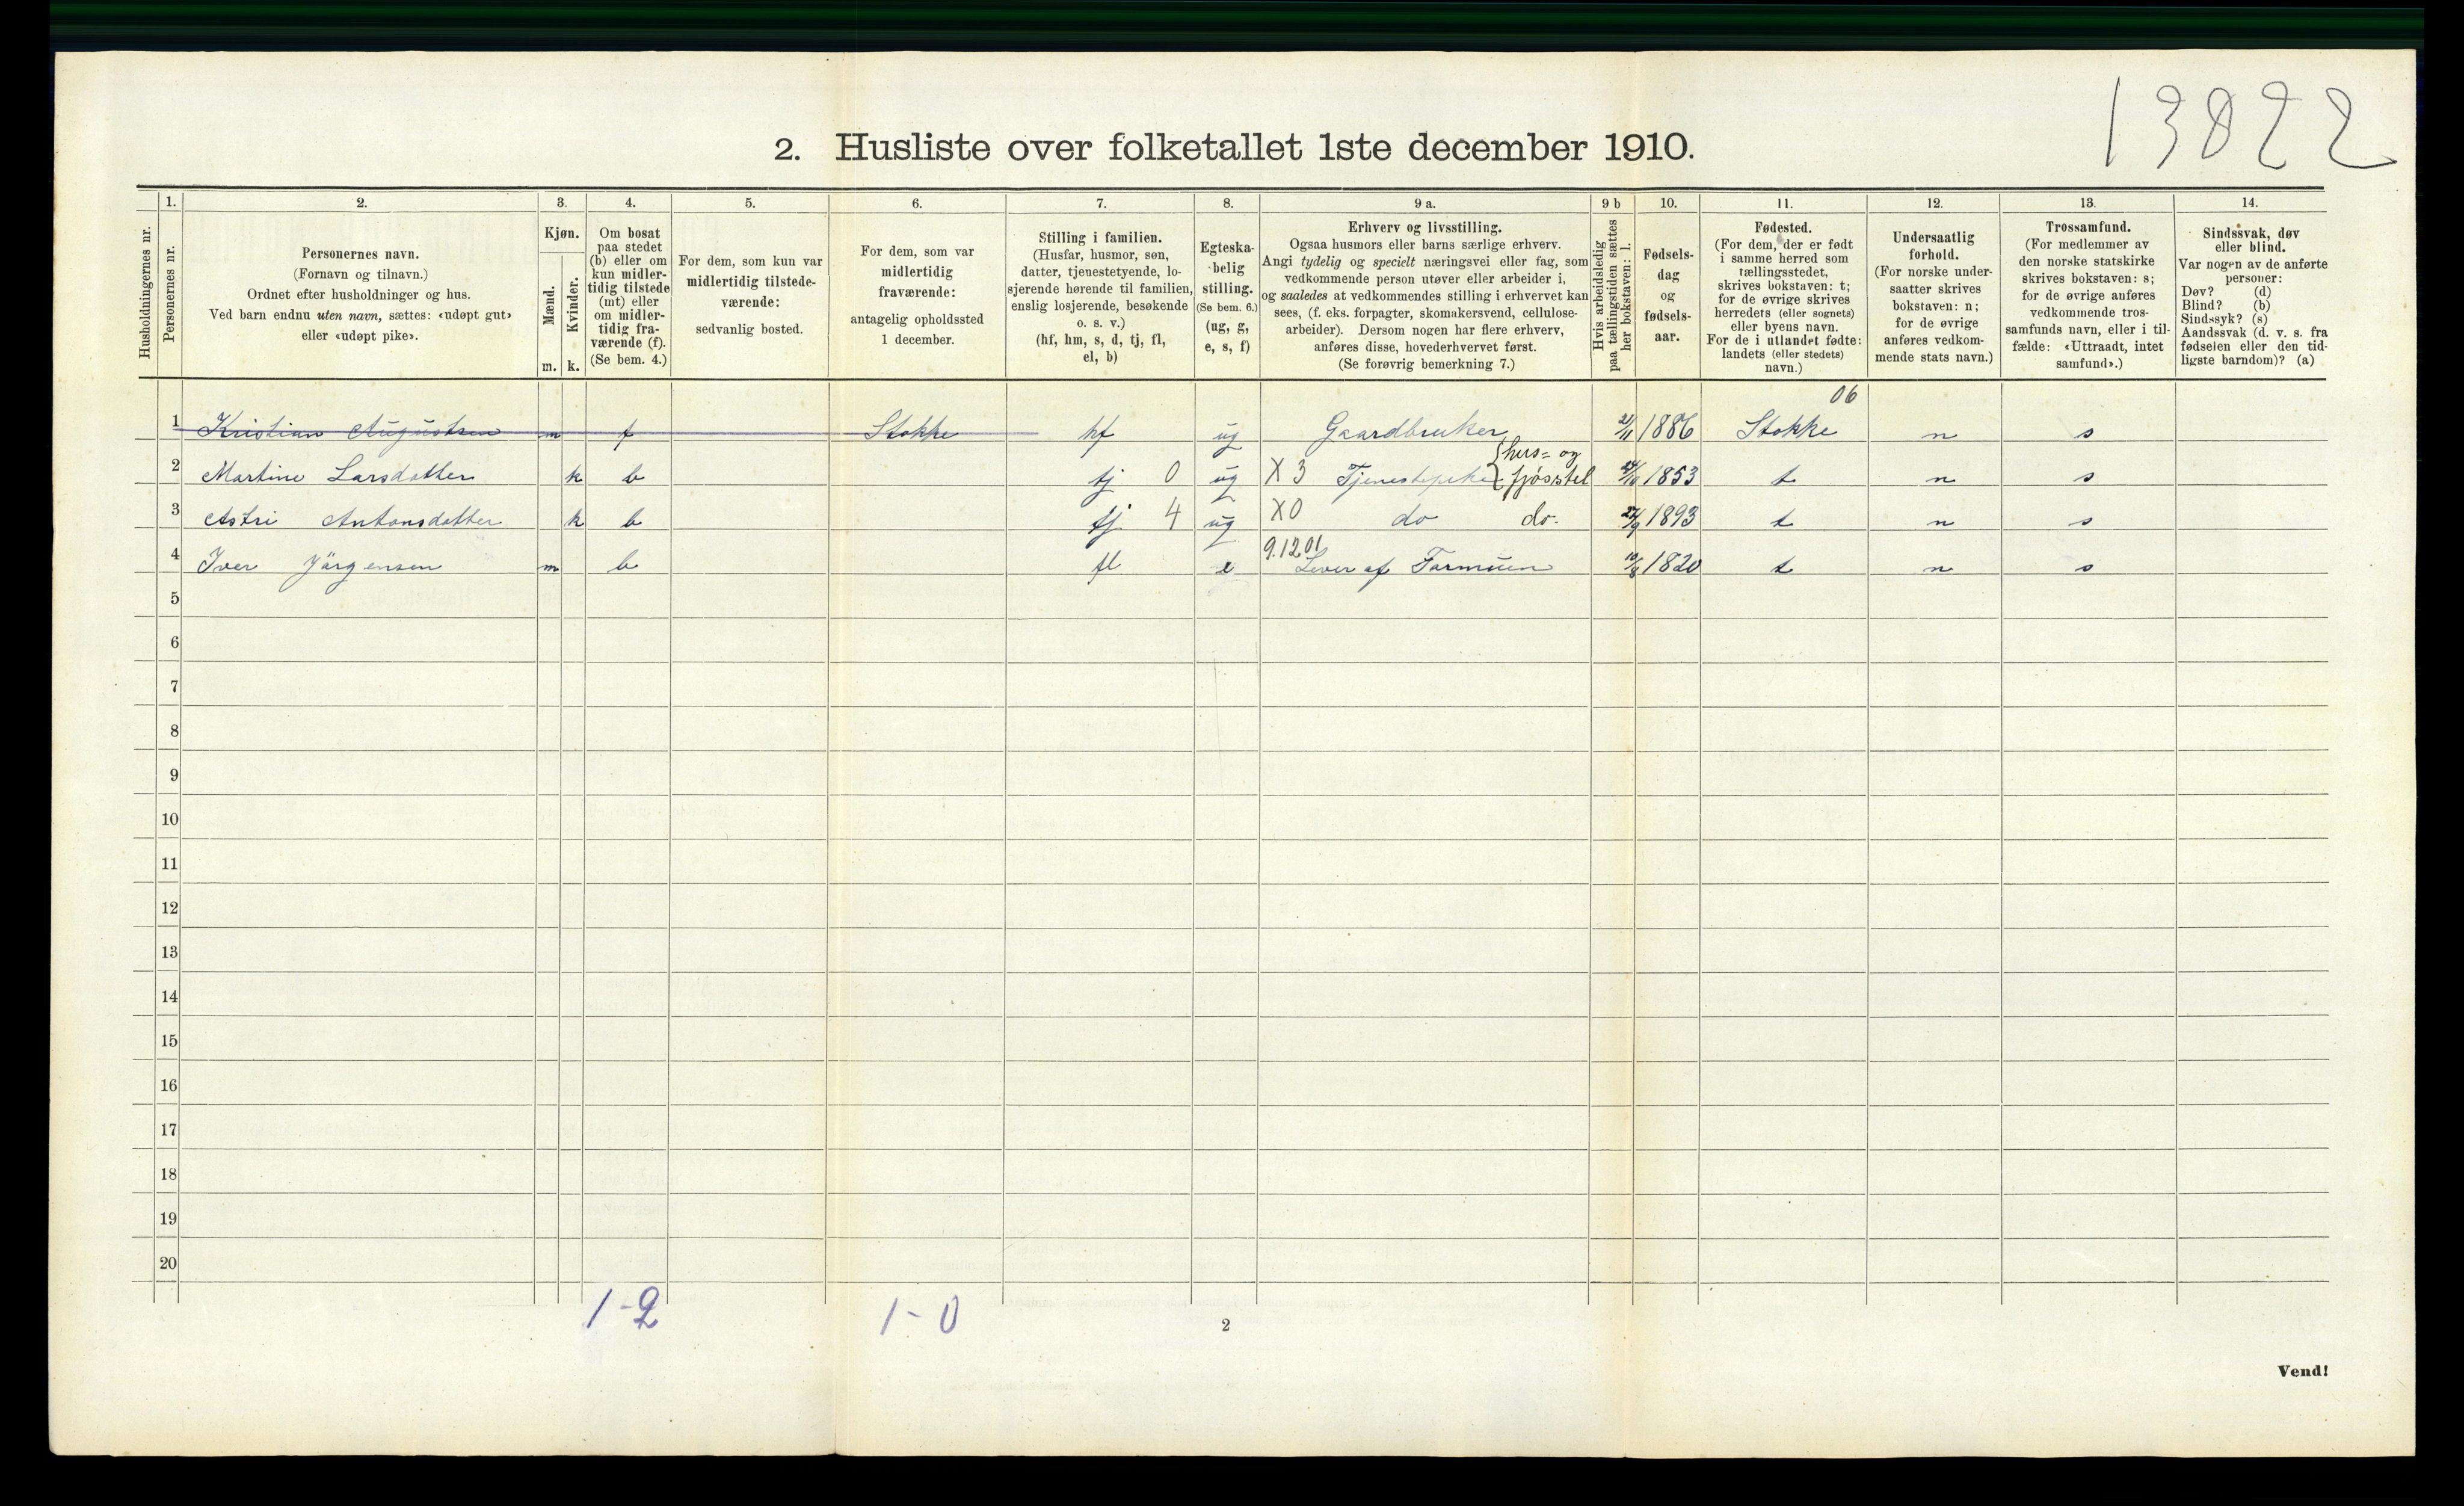 13822
2. Husliste over folketallet 1ste december 1910.
Husholdningernes nr.
1.
Personernes nr.
2.
Personernes navn.
(Fornavn og tilnavn.)
Ordnet efter husholdninger og hus.
Ved barn endnu uten navn, sættes: «udøpt gut»
eller «udøpt pike».
3.
Kjøn.
Mænd.
Kvinder.
m. k.
4.
Om bosat
paa stedet
(b) eller om
kun midler-
tidig tilstede
(mt) eller
om midler-
tidig fra-
værende (f).
(Se bem. 4.)
5.
For dem, som kun var
midlertidig tilstede-
værende:
sedvanlig bosted.
6.
For dem, som var
midlertidig
fraværende:
antagelig opholdssted
1 december.
7.
Stilling i familien.
(Husfar, husmor, søn,
datter, tjenestetyende, lo-
sjerende hørende til familien,
enslig losjerende, besøkende
o. s. v.)
(hf, hm, s, d, tj, fl,
el, b)
8.
Egteska-
belig
stilling.
(Se bem. 6.)
(ug, g,
e, s, f)
9 a.
Erhverv og livsstilling.
Ogsaa husmors eller barns særlige erhverv.
Angi tydelig og specielt næringsvei eller fag, som
vedkommende person utøver eller arbeider i,
og saaledes at vedkommendes stilling i erhvervet kan
sees, (f. eks. forpagter, skomakersvend, cellulose-
arbeider). Dersom nogen har flere erhverv,
anføres disse, hovederhvervet først.
(Se forøvrig bemerkning 7.)
9 b
Hvis arbeidsledig
paa tællingstiden sættes
her bokstaven: l.
10.
Fødsels-
dag
og
fødsels-
aar.
11.
Fødested.
(For dem, der er født
i samme herred som
tællingsstedet,
skrives bokstaven: t;
for de øvrige skrives
herredets (eller sognets)
eller byens navn.
For de i utlandet fødte:
landets (eller stedets)
navn.)
12.
Undersaatlig
forhold.
(For norske under-
saatter skrives
bokstaven: n;
for de øvrige
anføres vedkom-
mende stats navn.)
13.
Trossamfund.
(For medlemmer av
den norske statskirke
skrives bokstaven: s;
for de øvrige anføres
vedkommende tros-
samfunds navn, eller i til-
fælde: «Uttraadt, intet
samfund».)
14.
Sindssvak, døv
eller blind.
Var nogen av de anførte
personer:
Døv? (d)
Blind? (b)
Sindssyk? (s)
Aandssvak (d. v. s. fra
fødselen eller den tid-
ligste barndom)? (a)
06
1 Kristian Augustsen m f Stokke hf ug Gaardbruker 21/11 1886 Stokke n s
2 Martine Larsdatter k b tj 0 ug X 3 Tjenestepike { hus= og fjósstel 1853 t n s
3 Astri Antonsdatter k b tj 4 ug X0 do do. 1893 t n s
9.1201
4 Iver Jörgensen m b fl e Lever af Formuen 10/8 1820 t n s
5
6
7
8
9
10
11
12
13
14
15
16
17
18
19
20
1-2 1-0
2
Vend!